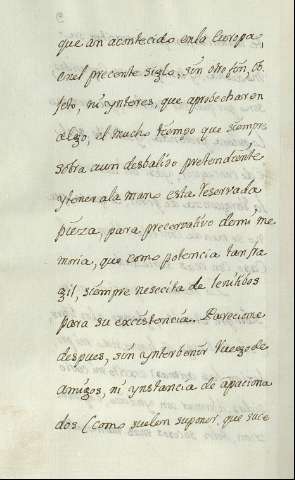 que an acontecido en la Europa,
en el precente siglo, sin otro fin, ob
jeto, ni ynteres, que aprobechar en
algo, el mucho tiempo que siempre
sobra a un desbalido pretendiente
y tener a la mano esta reservada
pieza, para precervativo de mi me
moria, que como potencia tan fra
gil, siempre nesecita de lenitibos
para su excistencia. Pareciome
despues, sin ynterbenir ruego de
amigos, ni ynstancia de apaciona
dos (como suelen suponer, que suce